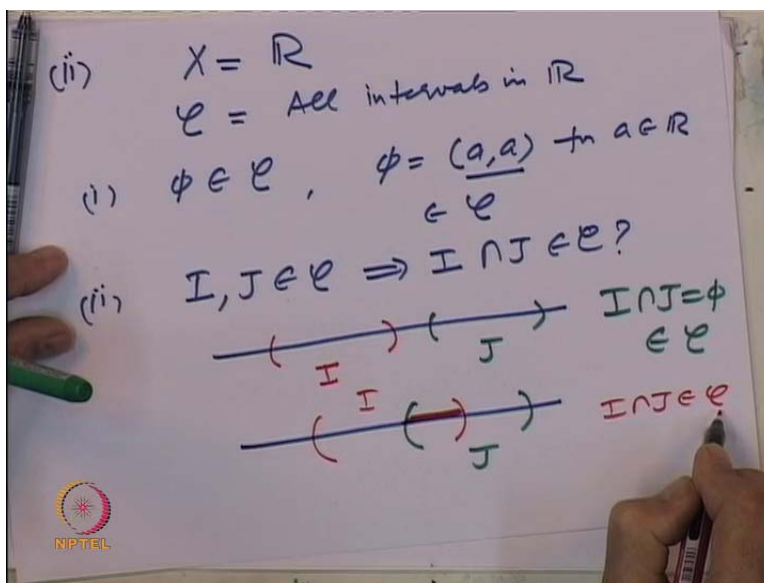 (ii) X = ℝ
𝒞 = All intervals in ℝ
(i) φ ∈ 𝒞 , φ = (a,a) for a ∈ ℝ
∈ 𝒞
(ii) I, J ∈ 𝒞 ⇒ I ∩ J ∈ 𝒞 ?
( I ) ( J ) I ∩ J = φ
∈ 𝒞
I
( ( ) J ) I ∩ J ∈ 𝒞
NPTEL